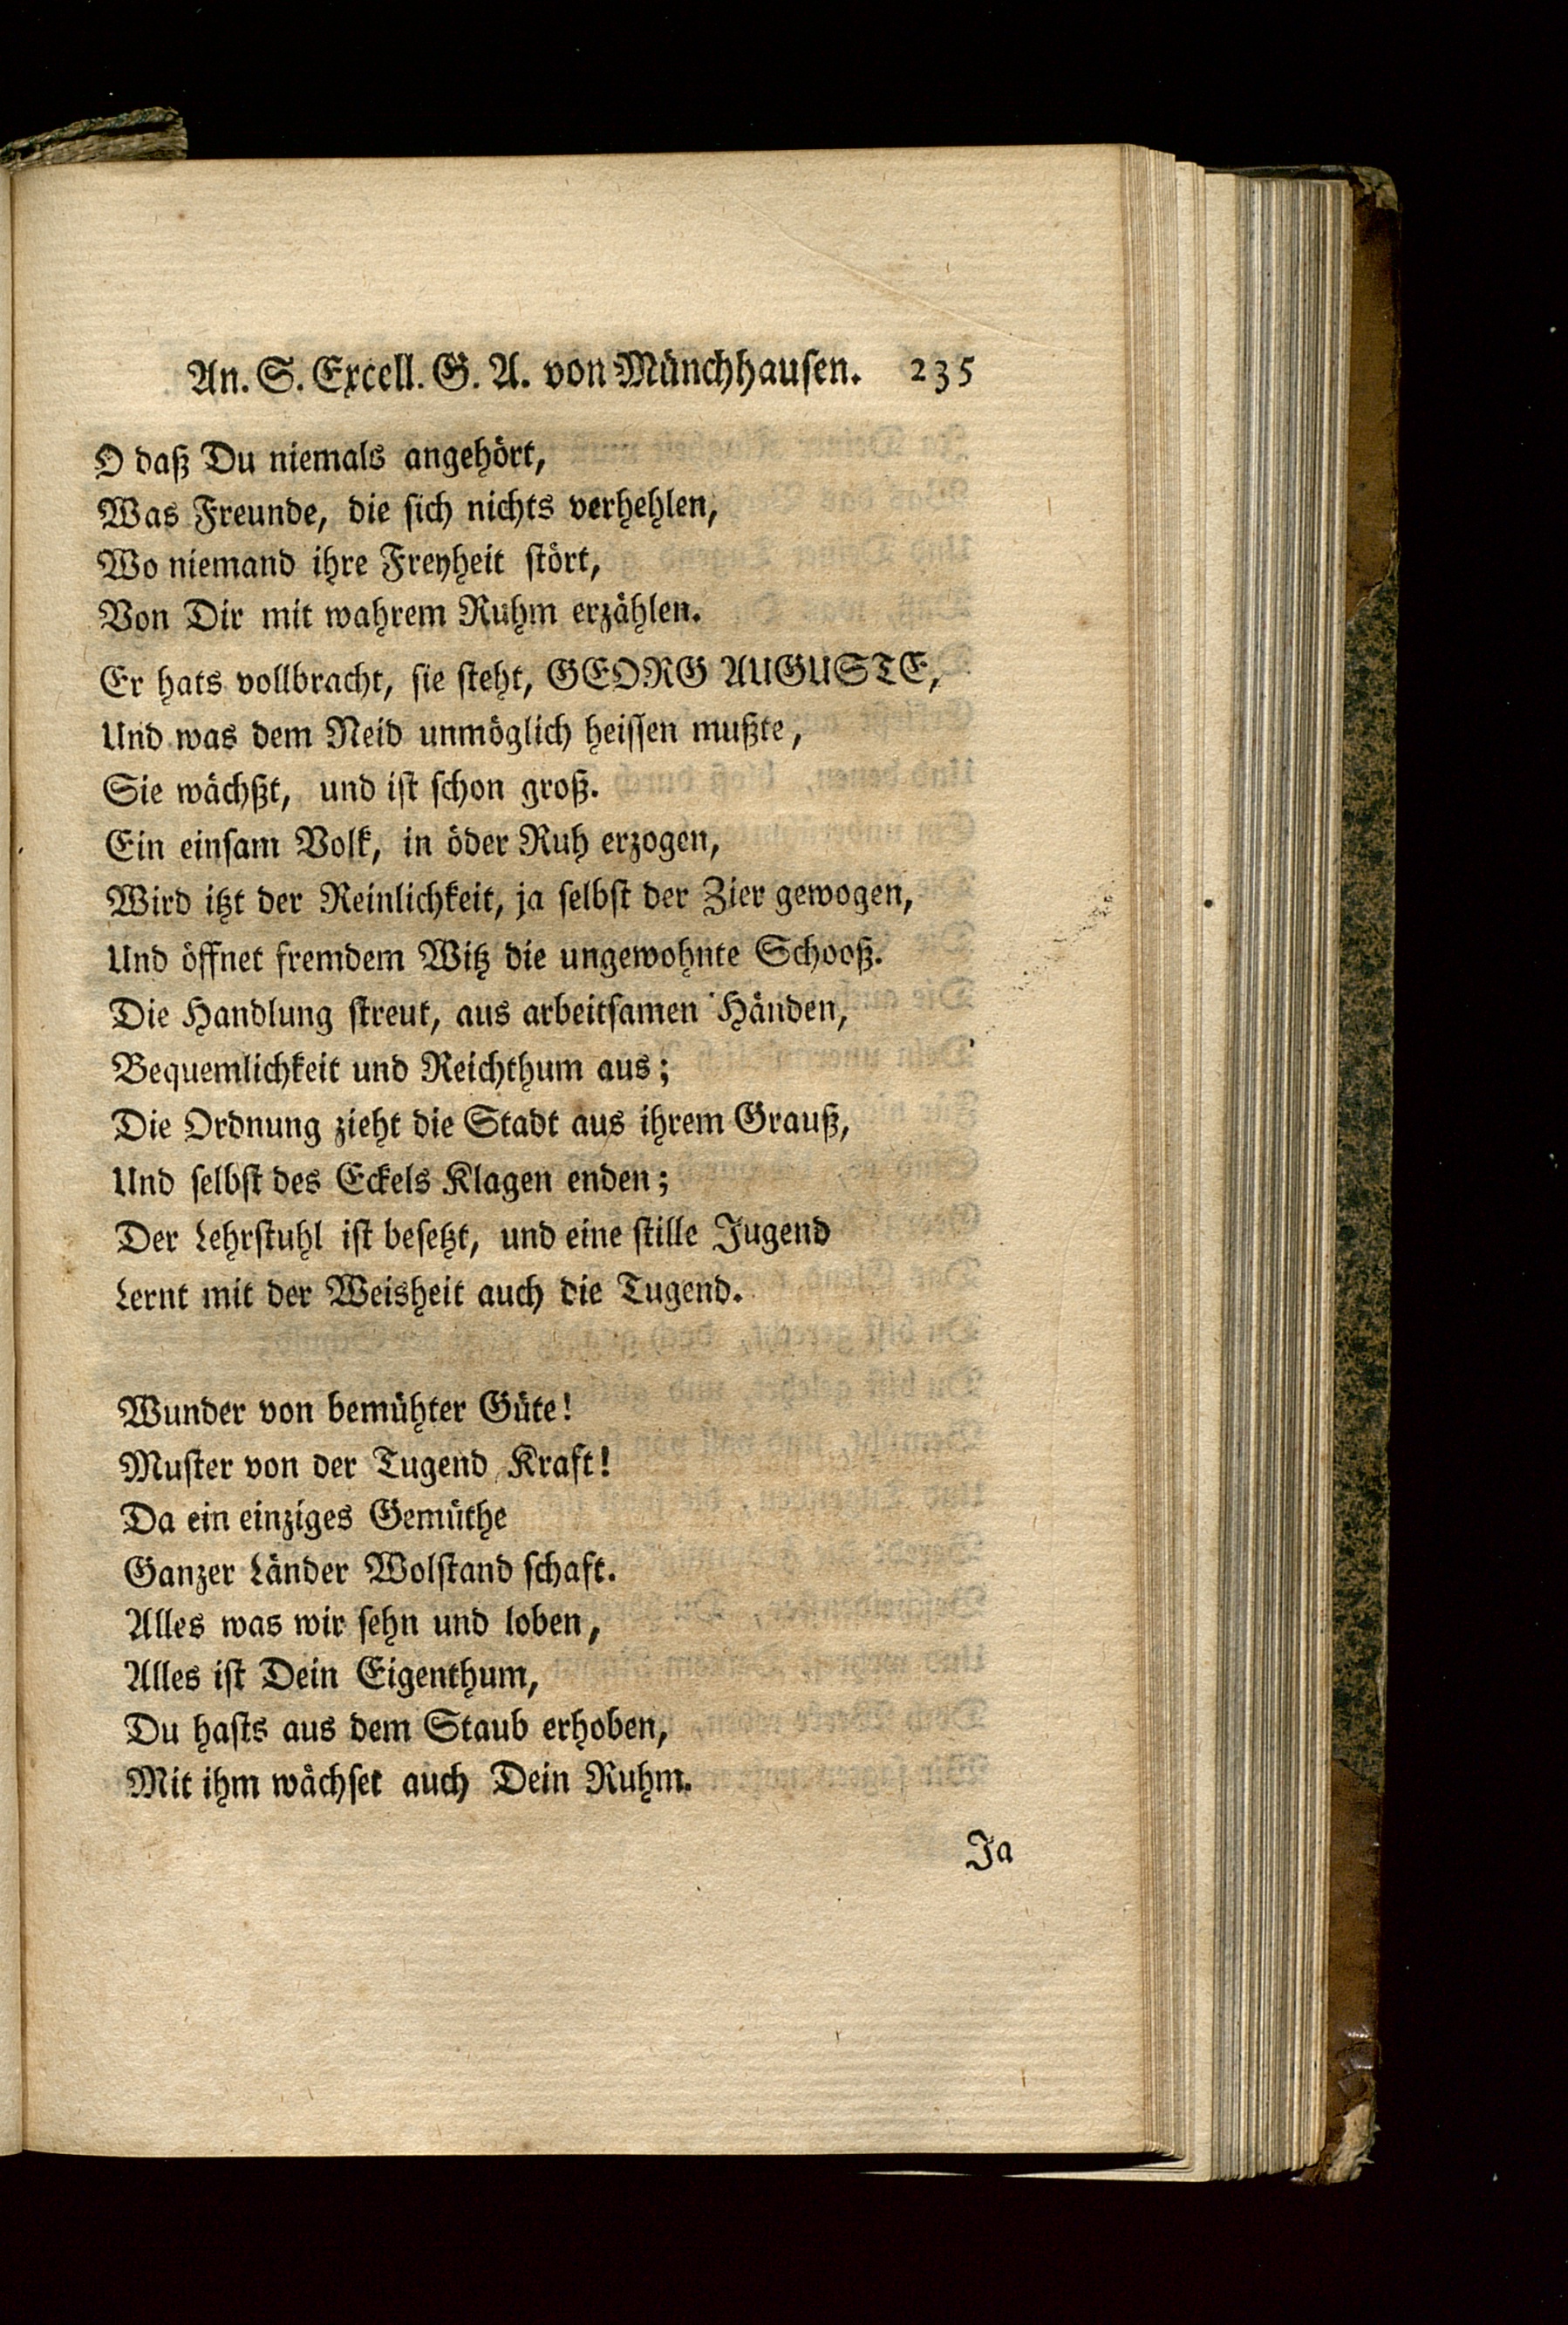 An. S. Excell. G. A. von Münchhausen. 235
O daß Du niemals angehört,
Was Freunde, die sich nichts verhehlen,
Wo niemand ihre Freyheit stört,
Von Dir mit wahrem Ruhm erzählen.
Er hats vollbracht, sie steht, GEORG AUGUSTE,
Und was dem Neid unmöglich heissen mußte,
Sie wächßt, und ist schon groß.
Ein einsam Volk, in öder Ruh erzogen,
Wird itzt der Reinlichkeit, ja selbst der Zier gewogen,
Und öffnet fremdem Witz die ungewohnte Schooß.
Die Handlung streut, aus arbeitsamen Händen,
Bequemlichkeit und Reichthum aus;
Die Ordnung zieht die Stadt aus ihrem Grauß,
Und selbst des Eckels Klagen enden;
Der Lehrstuhl ist besetzt, und eine stille Jugend
Lernt mit der Weisheit auch die Tugend.
Wunder von bemühter Güte!
Muster von der Tugend Kraft!
Da ein einziges Gemüthe
Ganzer Länder Wolstand schaft.
Alles was wir sehn und loben,
Alles ist Dein Eigenthum,
Du hasts aus dem Staub erhoben,
Mit ihm wächset auch Dein Ruhm.
Ja